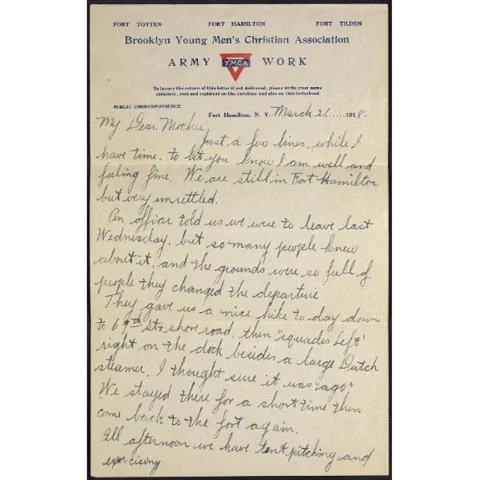 FORT TOTTEN FORT HAMILTON FORT TILDEN
Brooklyn Young Men's Christian Association
ARMY YMCA WORK
To insure the return of this letter if not delivered, please write your name
company, post and regiment on the envelope and also on this letterhead
PUBLIC CORRESPONDENCE
Fort Hamilton, N. Y. March 26 1918.
My Dear Mother,
Just a few lines, while I
have time, to let you know I am well and
feeling fine. We are still in Fort Hamilton
but very unsettled.
An officer told us we were to leave last
Wednesday, but so many people knew
about it, and the grounds were so full of
people they changed the departure
They gave us a nice hike to-day down
to 69th str shore road, then "squades left"
right on the dock besides a large Dutch
steamer. I thought sure it was "ago"
We stayed there for a short time then
come back to the fort again.
All afternoon we have tent pitching and
exercising